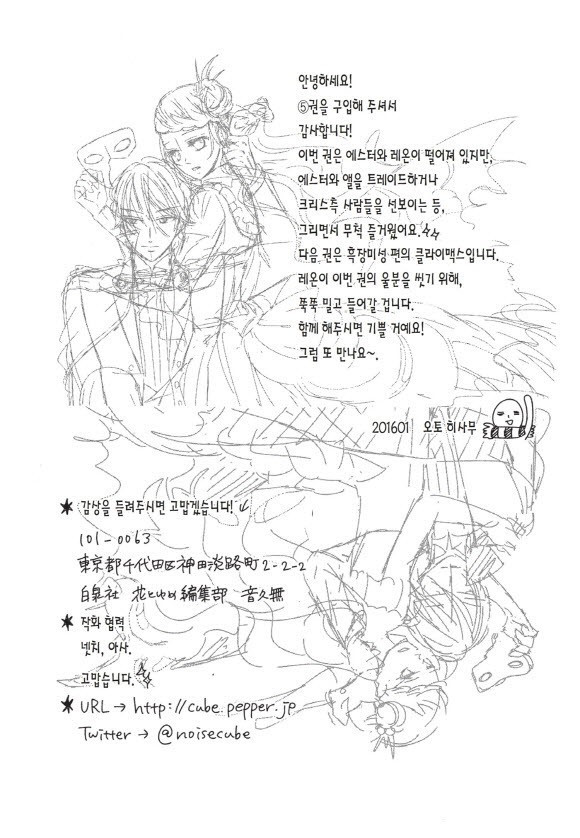 안녕하세요!
⑤권을 구입해 주셔서
감사합니다!
이번 권은 에스터와 레온이 떨어져 있지만,
에스터와 앨을 트레이드하거나
크리스측 사람들을 선보이는 등,
그리면서 무척 즐거웠어요.
다음 권은 흑장미성 편의 클라이맥스입니다.
레온이 이번 권의 울분을 씻기 위해,
푹푹 밀고 들어갈 겁니다.
함께 해주시면 기쁠 거예요!
그럼 또 만나요~.
201601 오토 히사무
★ 감상을 들려주시면 고맙겠습니다!
101-0063
東京都千代田区神田淡路町2-2-2
白泉社 花とゆめ編集部 音久無
★ 작화 협력
넷치, 아사.
고맙습니다.
★ URL → http://cube.pepper.jp
Twitter → @noisecube